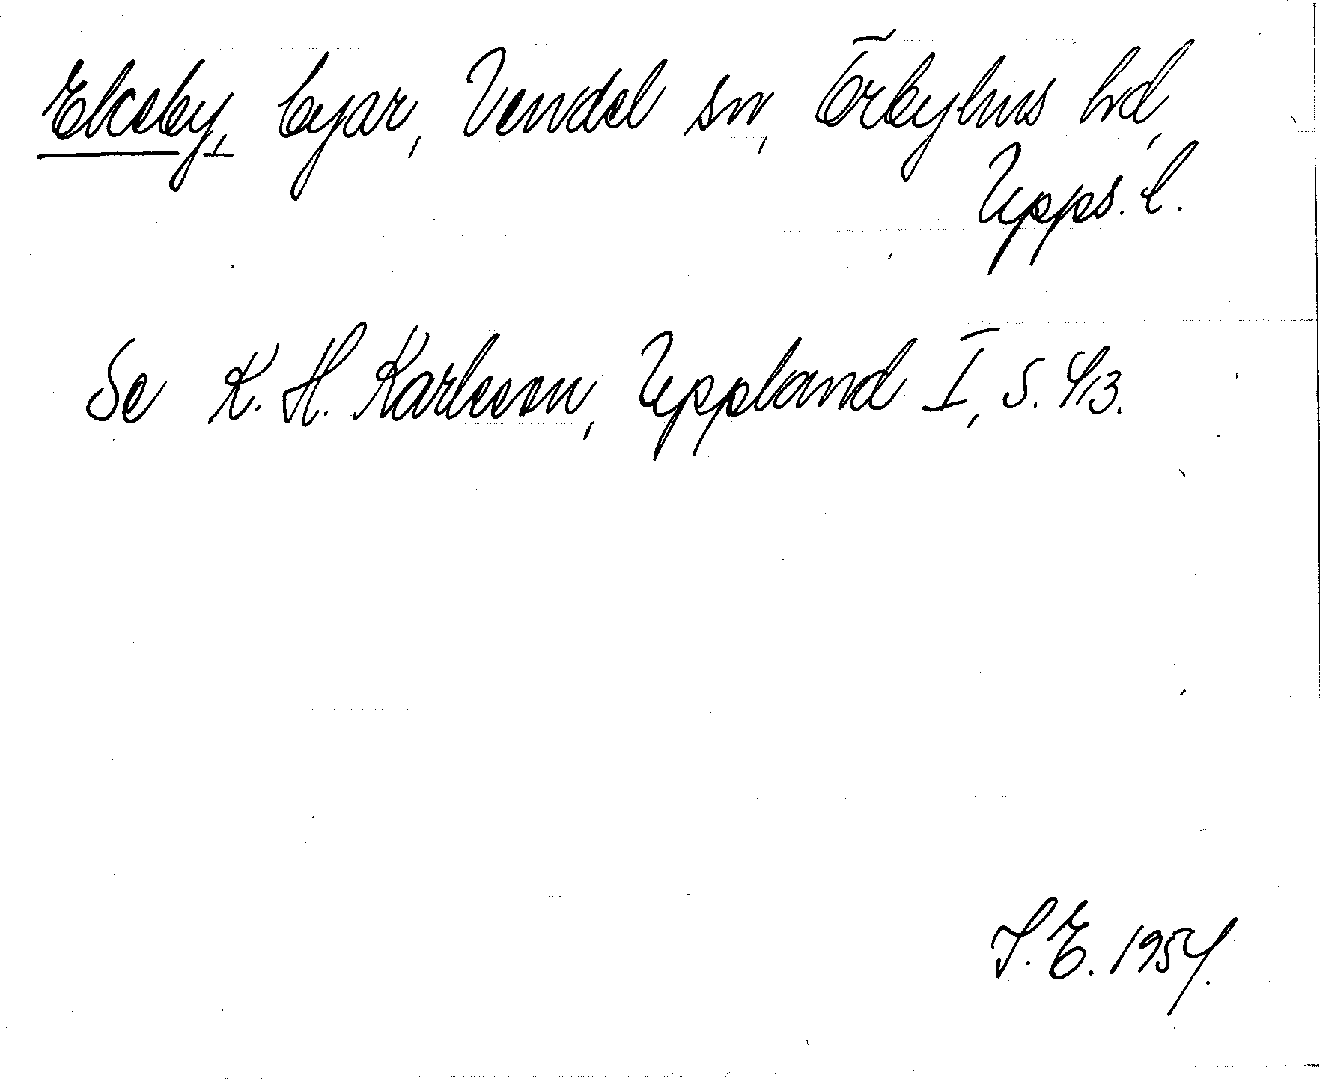 Ekeby, byar, Vendel sn, Örbyhus hd,
Upps. l.
Se K. H. Karlsson, Uppland I, s. 413.
S. E. 1954.